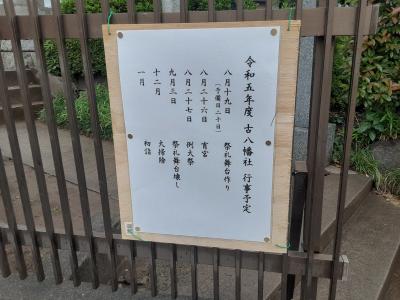 令和五年度 古八幡社 行事予定
八月十九日 祭礼舞台作り
(予備日二十日)
八月二十六日 宵宮
八月二十七日 例大祭
九月三日 祭礼舞台壊し
十二月 大掃除
一月 初詣